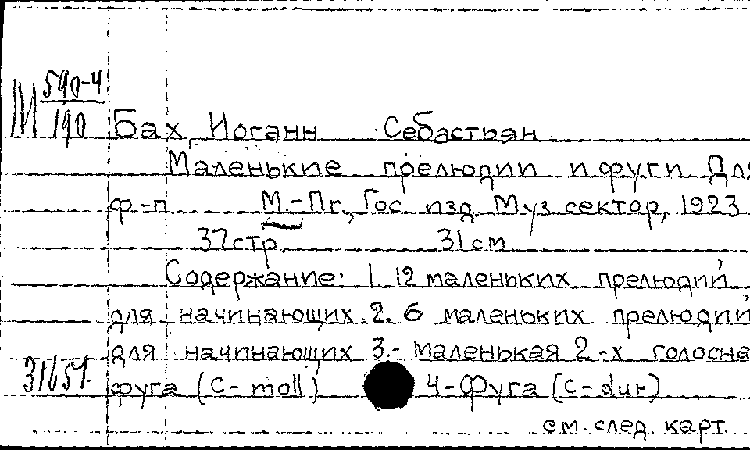 М 590-4
190
Бах, Иоганн Себастьян
Маленькие прелюдии и фуги для
ф-п М.-Пг., Гос. изд. Муз. сектор, 1923
37 стр. 31 см
Содержание: 1. 12 маленьких прелюдий
для начинающих. 2. 6 маленьких прелюдий
для начинающих 3.- маленькая 2-х голосна
31651.
фуга (c-moll) 4-Фуга (C-dur)
см. след. карт.